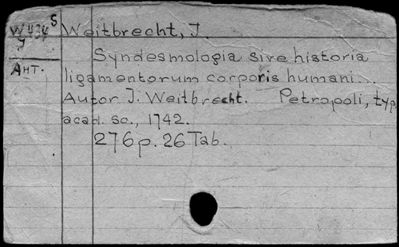 W434 S Weitbrecht, J.
J
Syndesmologia sive historia
Ант. ligamentorum corporis humani...
Autor J. Weitbrecht. Petropoli, typ.
acad. sc., 1742.
276 p. 26 Tab.